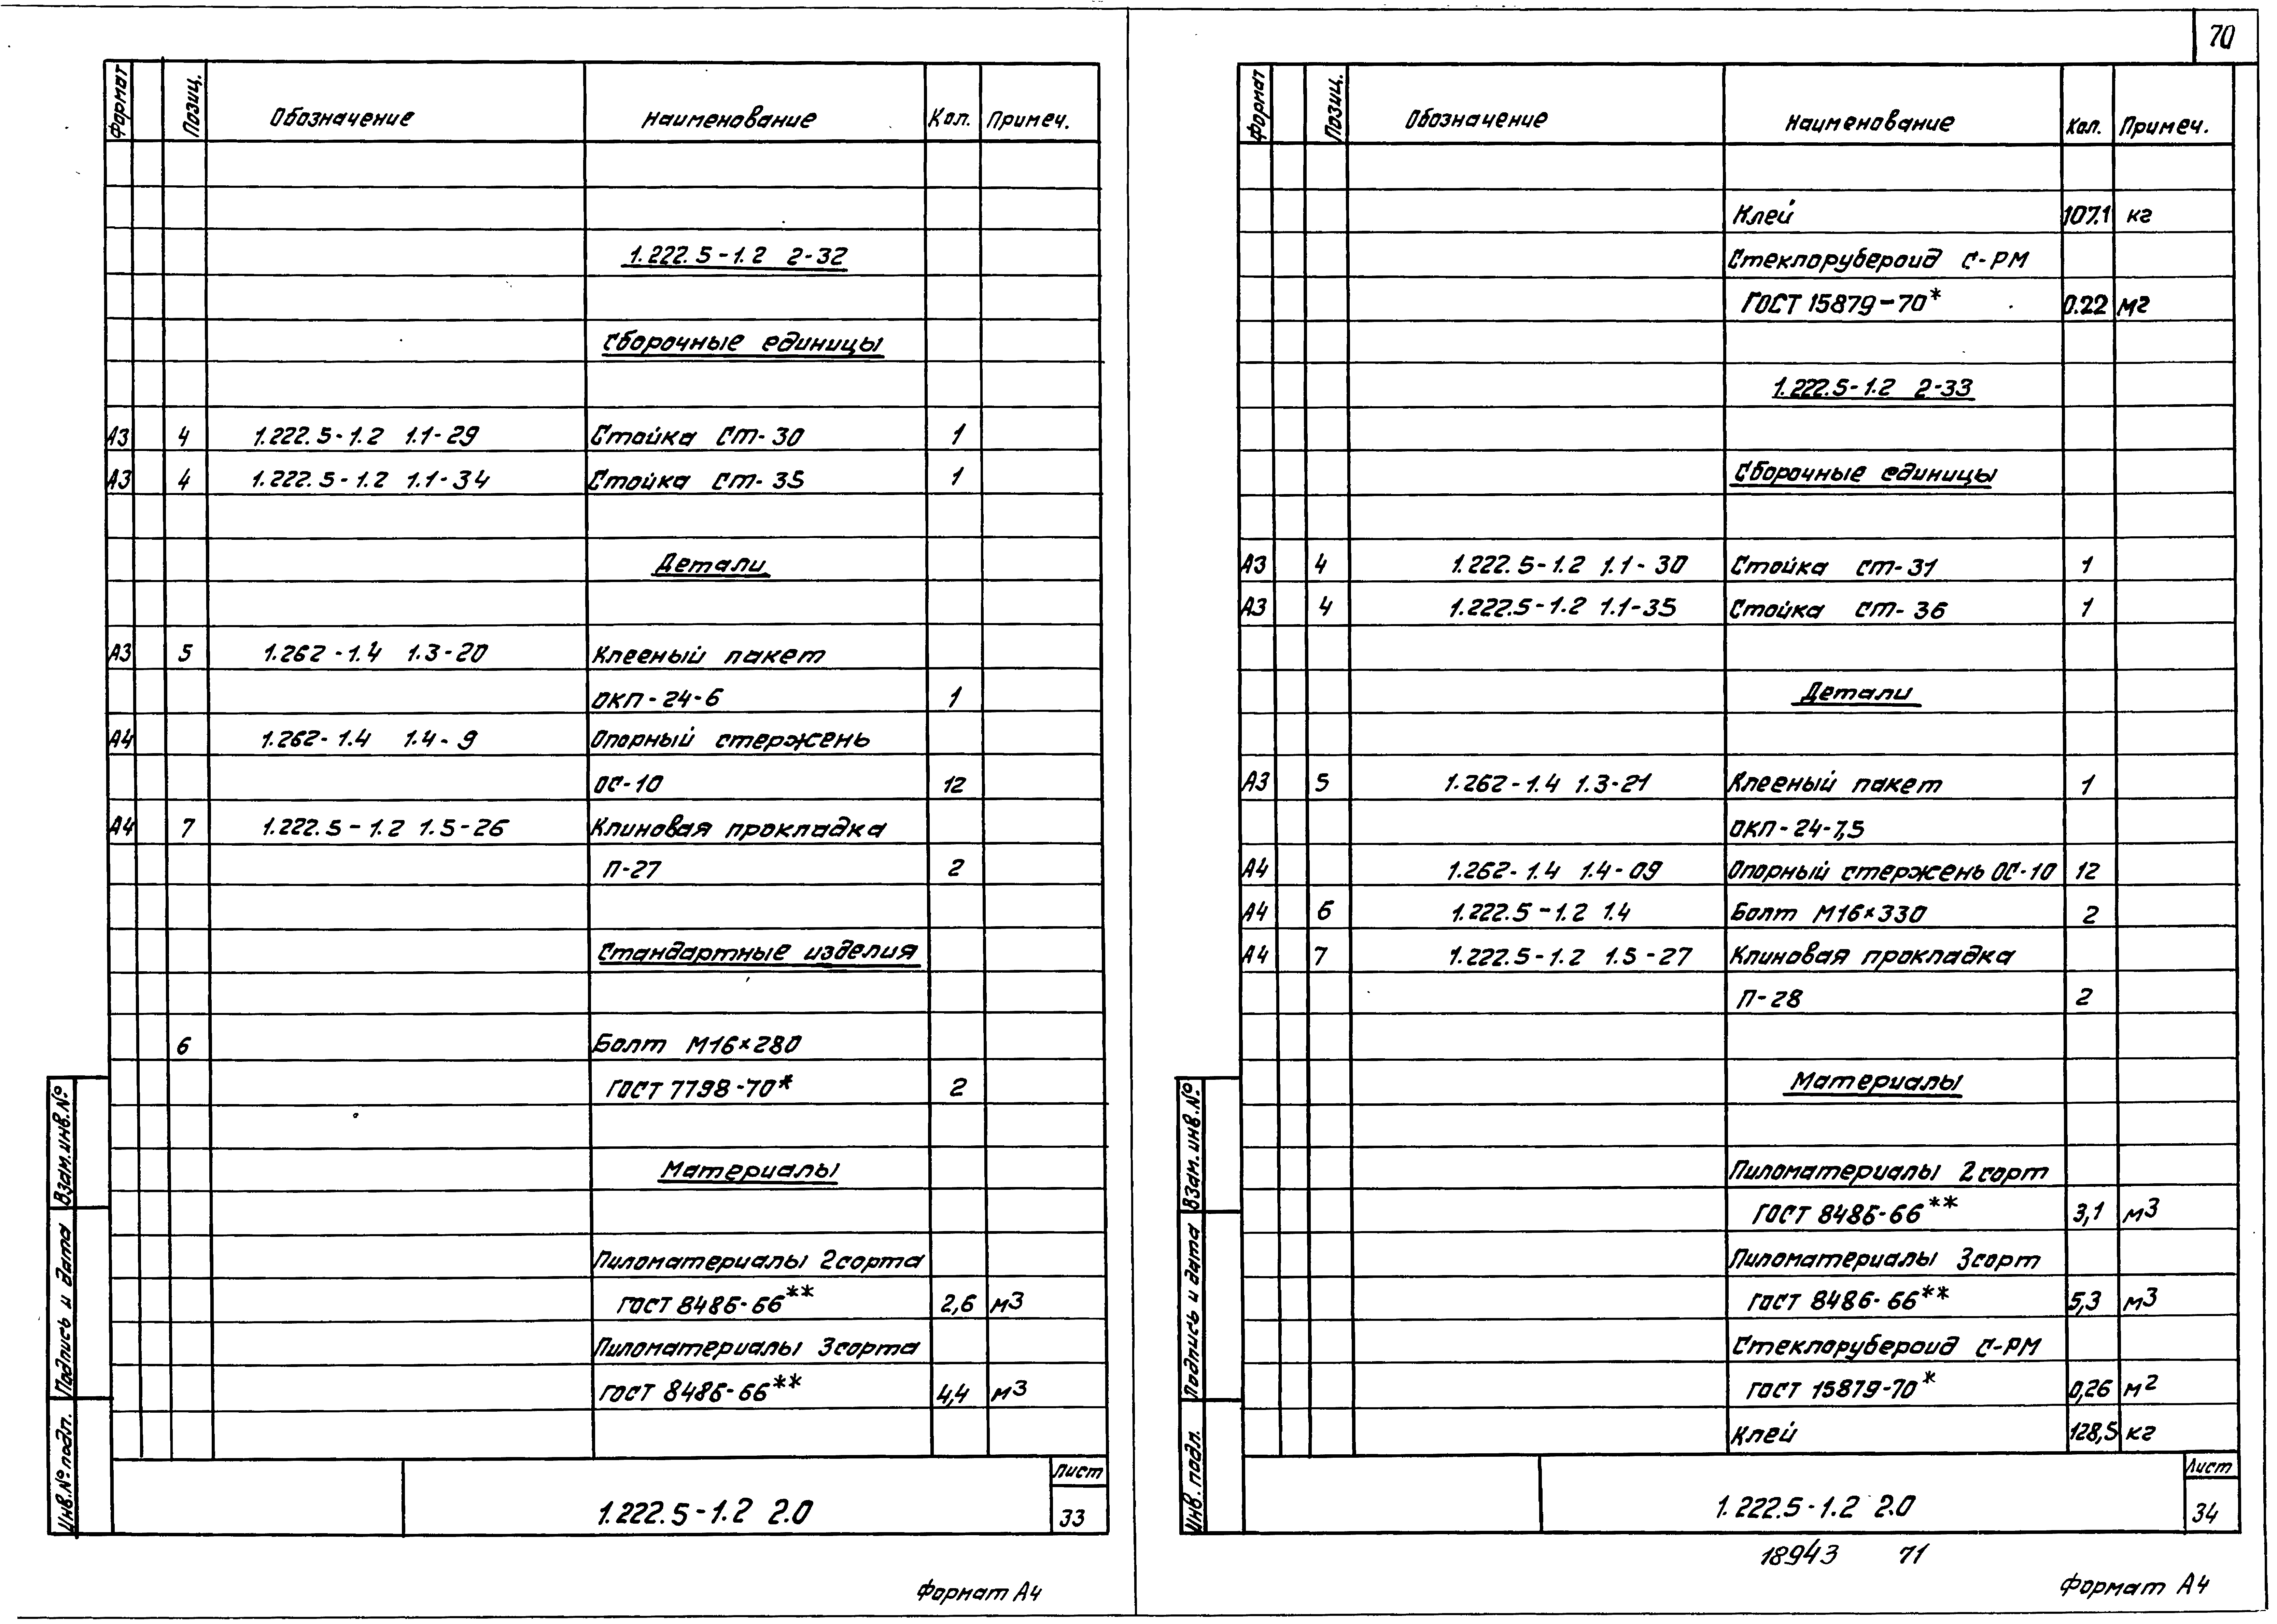 70
Формат Позиц. Обозначение Наименование Кол. Примеч.
1.222.5-1.2 2-32
Сборочные единицы
А3 4 1.222.5-1.2 1.1-29 Стойка СТ-30 1
А3 4 1.222.5-1.2 1.1-34 Стойка СТ-35 1
Детали
А3 5 1.262-1.4 1.3-20 Клееный пакет
ОКП-24-6 1
А4 1.262-1.4 1.4-9 Опорный стержень
ОС-10 12
А4 7 1.222.5-1.2 1.5-26 Клиновая прокладка
П-27 2
Стандартные изделия
6 Болт М16×280
ГОСТ 7798-70* 2
Материалы
Пиломатериалы 2сорта
ГОСТ 8486-66** 2,6 м3
Пиломатериалы 3сорта
ГОСТ 8486-66** 4,4 м3
Инв.№подл. Подпись и дата Взам.инв.№
1.222.5-1.2 2.0
Лист
33
Формат А4
Формат Позиц. Обозначение Наименование Кол. Примеч.
Клей 107.1 кг
Стеклорубероид С-РМ
ГОСТ 15879-70* 0.22 м2
1.222.5-1.2 2-33
Сборочные единицы
А3 4 1.222.5-1.2 1.1-30 Стойка СТ-31 1
А3 4 1.222.5-1.2 1.1-35 Стойка СТ-36 1
Детали
А3 5 1.262-1.4 1.3-21 Клееный пакет 1
ОКП-24-7,5
А4 1.262-1.4 1.4-09 Опорный стержень ОС-10 12
А4 6 1.222.5-1.2 1.4 Болт М16×330 2
А4 7 1.222.5-1.2 1.5-27 Клиновая прокладка
П-28 2
Материалы
Пиломатериалы 2сорт
ГОСТ 8486-66** 3,1 м3
Пиломатериалы 3сорт
ГОСТ 8486-66** 5,3 м3
Стеклорубероид С-РМ
ГОСТ 15879-70* 0,26 м2
Клей 128,5 кг
Инв. подл. Подпись и дата Взам.инв.№
1.222.5-1.2 2.0
Лист
34
18943 71
Формат А4